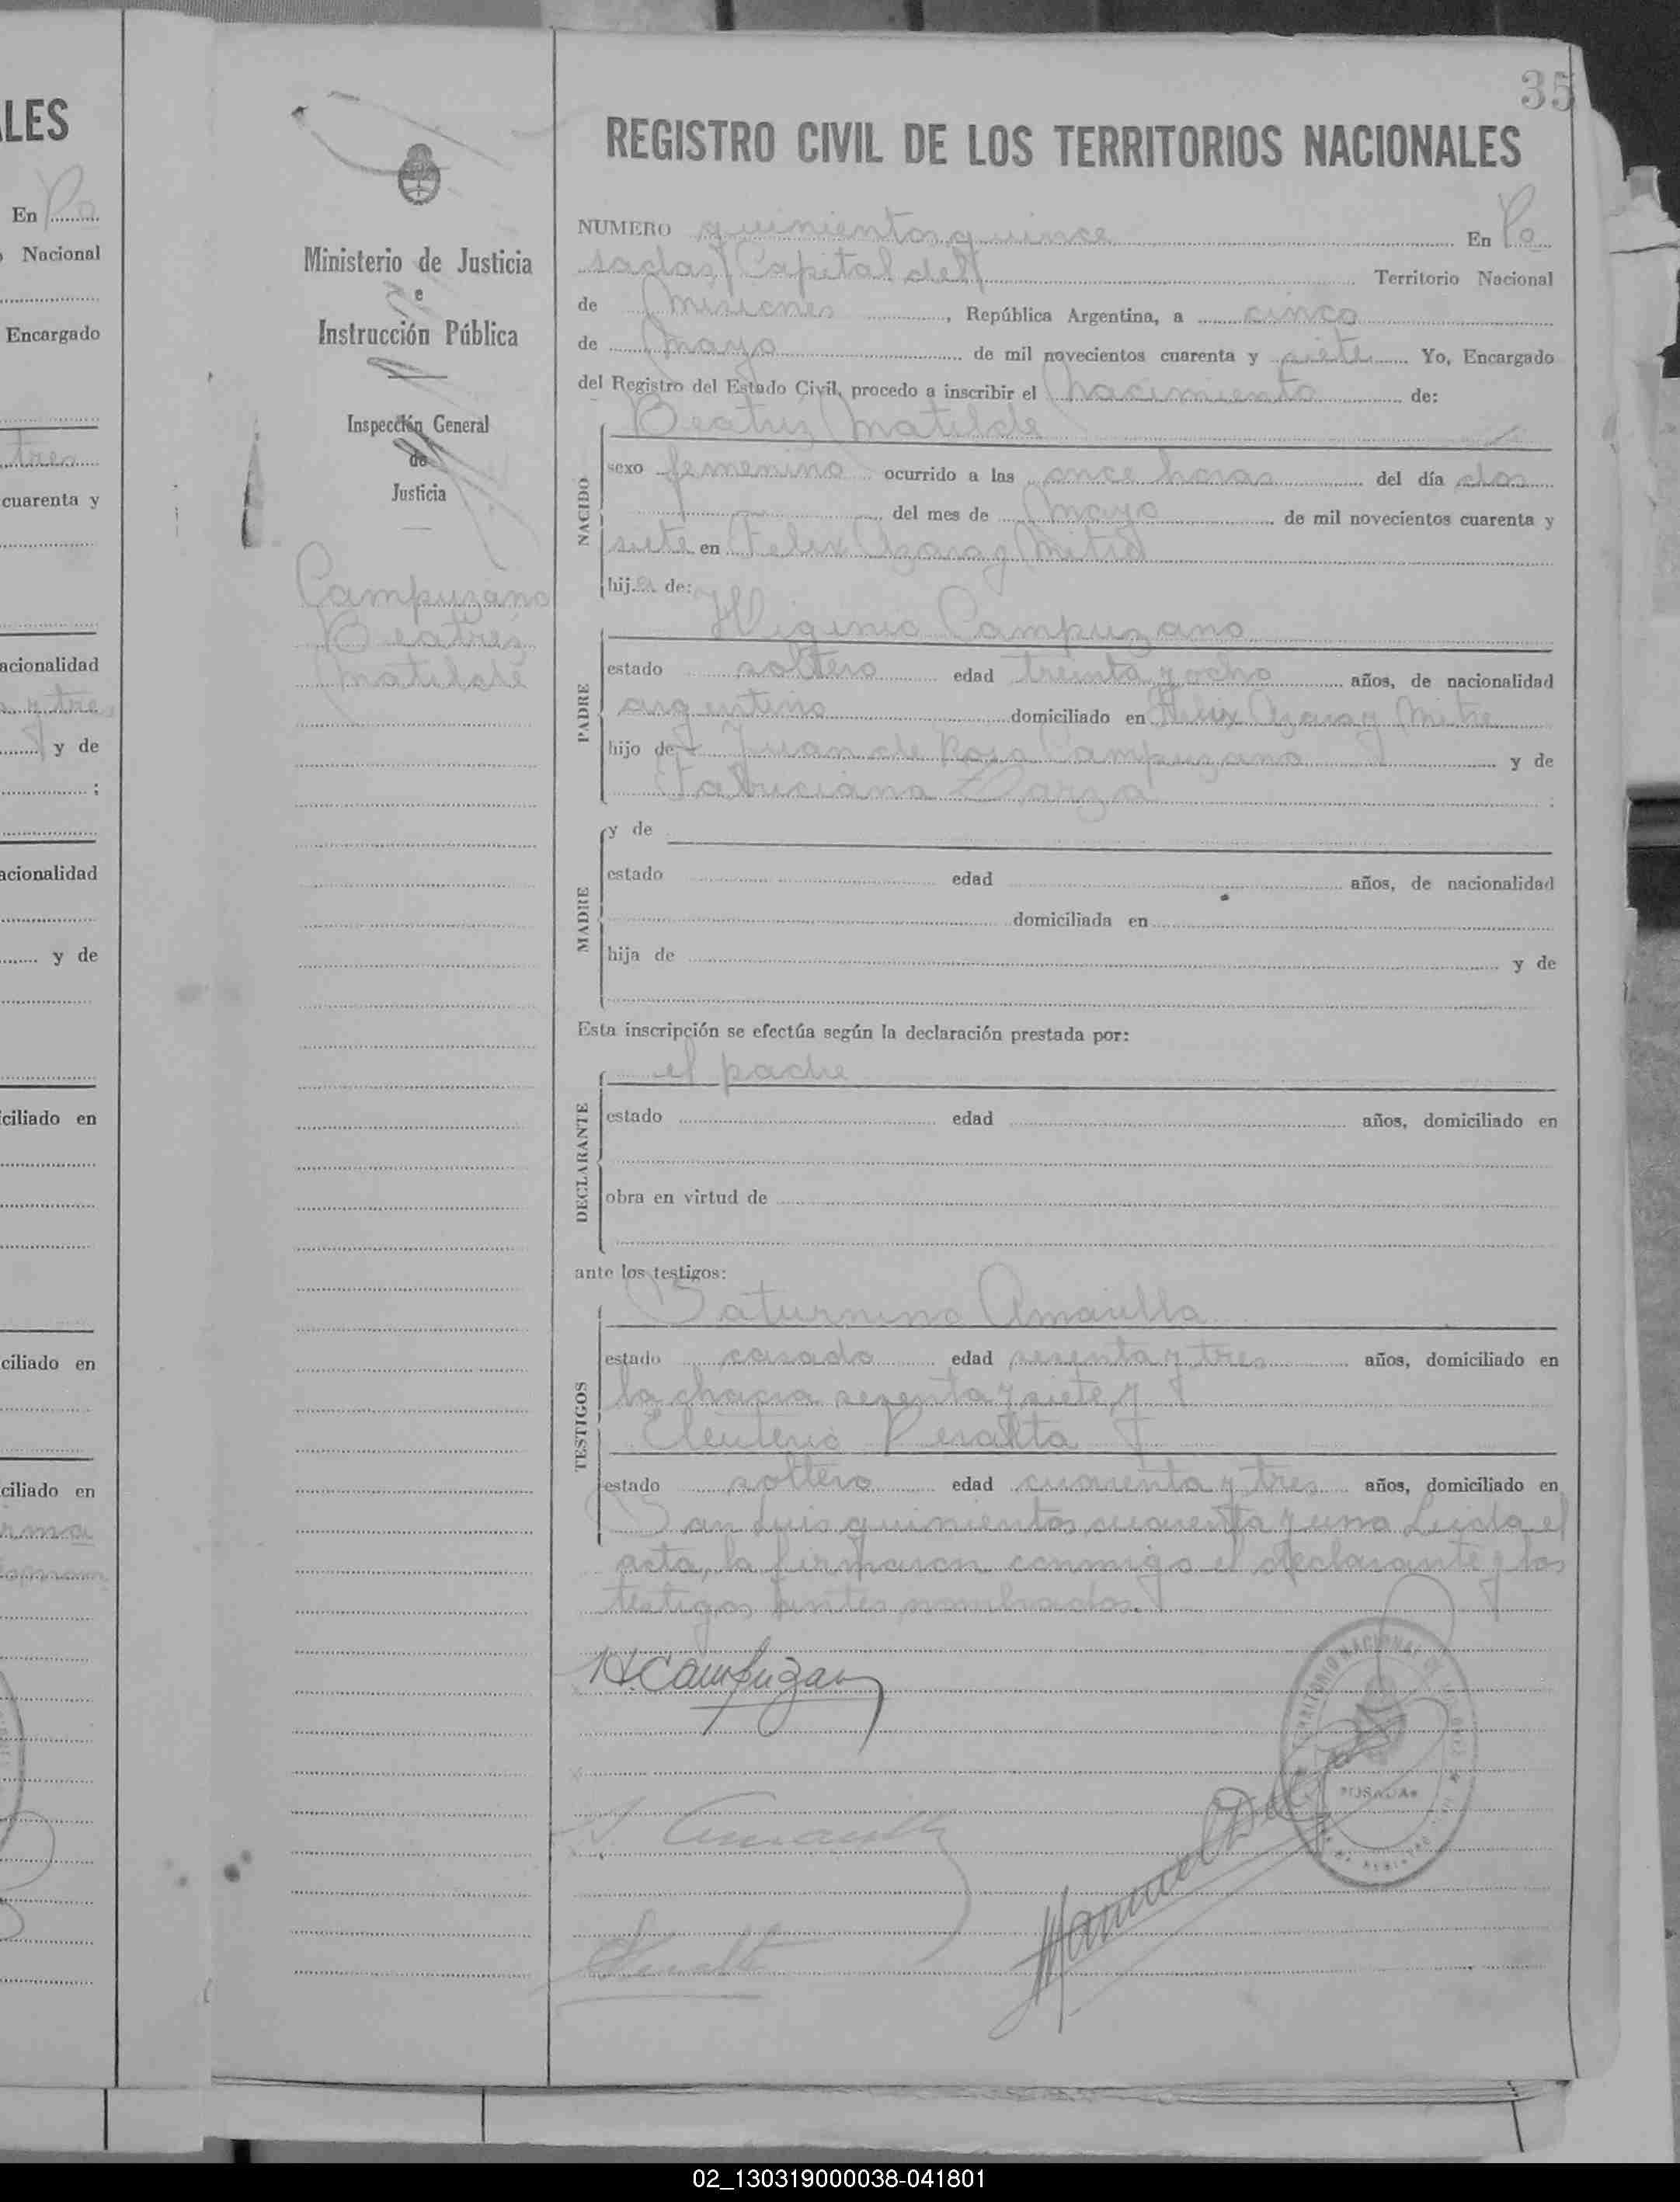 35
REGISTRO CIVIL DE LOS TERRITORIOS NACIONALES
NUMERO quinientos quince En Po
sadas, Capital del Territorio Nacional
de Misiones, República Argentina, a cinco
de Mayo de mil novecientos cuarenta y siete Yo, Encargado
del Registro del Estado Civil, procedo a inscribir el nacimiento de:
Beatriz Matilde
NACIDO
sexo femenino ocurrido a las once horas del día dos
del mes de Mayo de mil novecientos cuarenta y
siete en Felix Azara y Mitre
hija de:
Higinio Campuzano
PADRE
estado soltero edad treinta y ocho años, de nacionalidad
argentino domiciliado en Felix Azara y Mitre
hijo de Juan de Rosa Campuzano y de
Fabriciana Zarza
MADRE
y de
estado edad años, de nacionalidad
domiciliada en
hija de y de
Esta inscripción se efectúa según la declaración prestada por:
el padre
DECLARANTE
estado edad años, domiciliado en
obra en virtud de
ante los testigos:
Saturnino Amarilla
TESTIGOS
estado casado edad sesenta y tres años, domiciliado en
la chacra sesenta y siete y
Eleuterio Peralta
estado soltero edad cuarenta y tres años, domiciliado en
San Luis quinientos cuarenta y uno Leida el
acta, la firmaron conmigo el declarante y los
testigos antes nombrados.
H. Campuzano
S. Amarilla
Manuel
TERRITORIO NACIONAL DE MISIONES
POSADAS
E Peralta
Ministerio de Justicia
e
Instrucción Pública
Inspección General
de
Justicia
Campuzano
Beatris
Matilde
LES
En Po
Nacional
Encargado
tres
cuarenta y
acionalidad
y tres
y de
;
acionalidad
y de
ciliado en
ciliado en
ciliado en
02_130319000038-041801